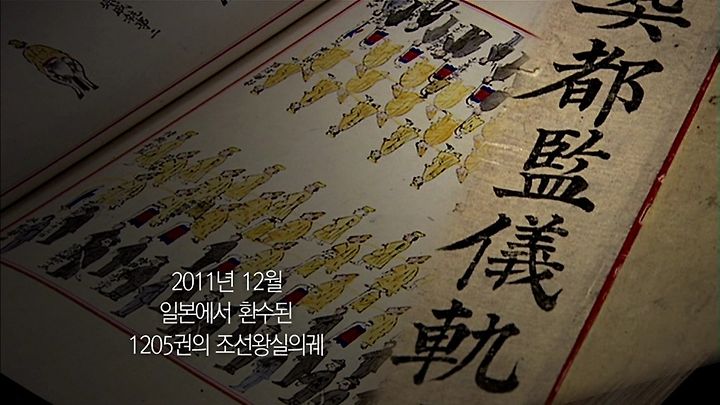 都監儀軌
2011년 12월
일본에서 환수된
1205권의 조선왕실의궤